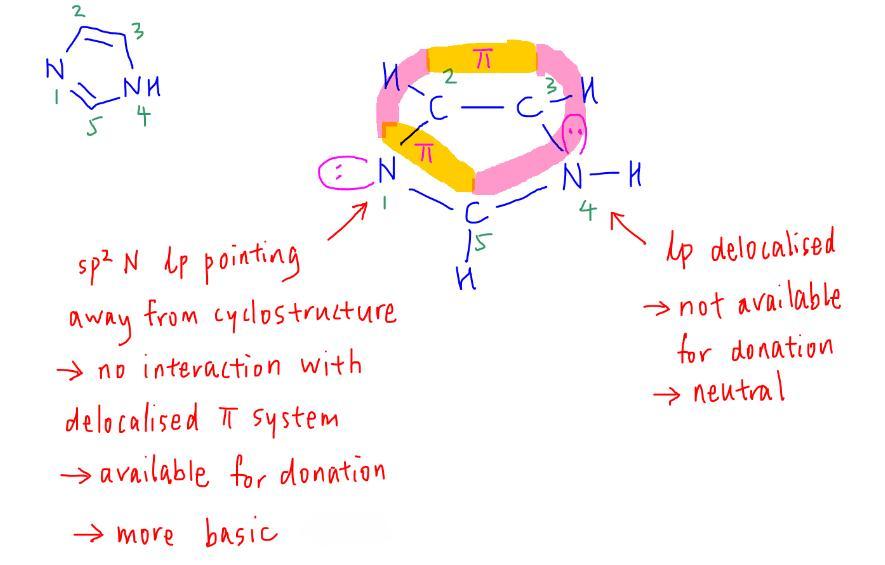 2
3
N
1
NH
4
5
π
H
2
3
H
C — C
π
: N
N — H
1
4
C
5
H
sp² N lp pointing
away from cyclostructure
→ no interaction with
delocalised π system
→ available for donation
→ more basic
lp delocalised
→ not available
for donation
→ neutral